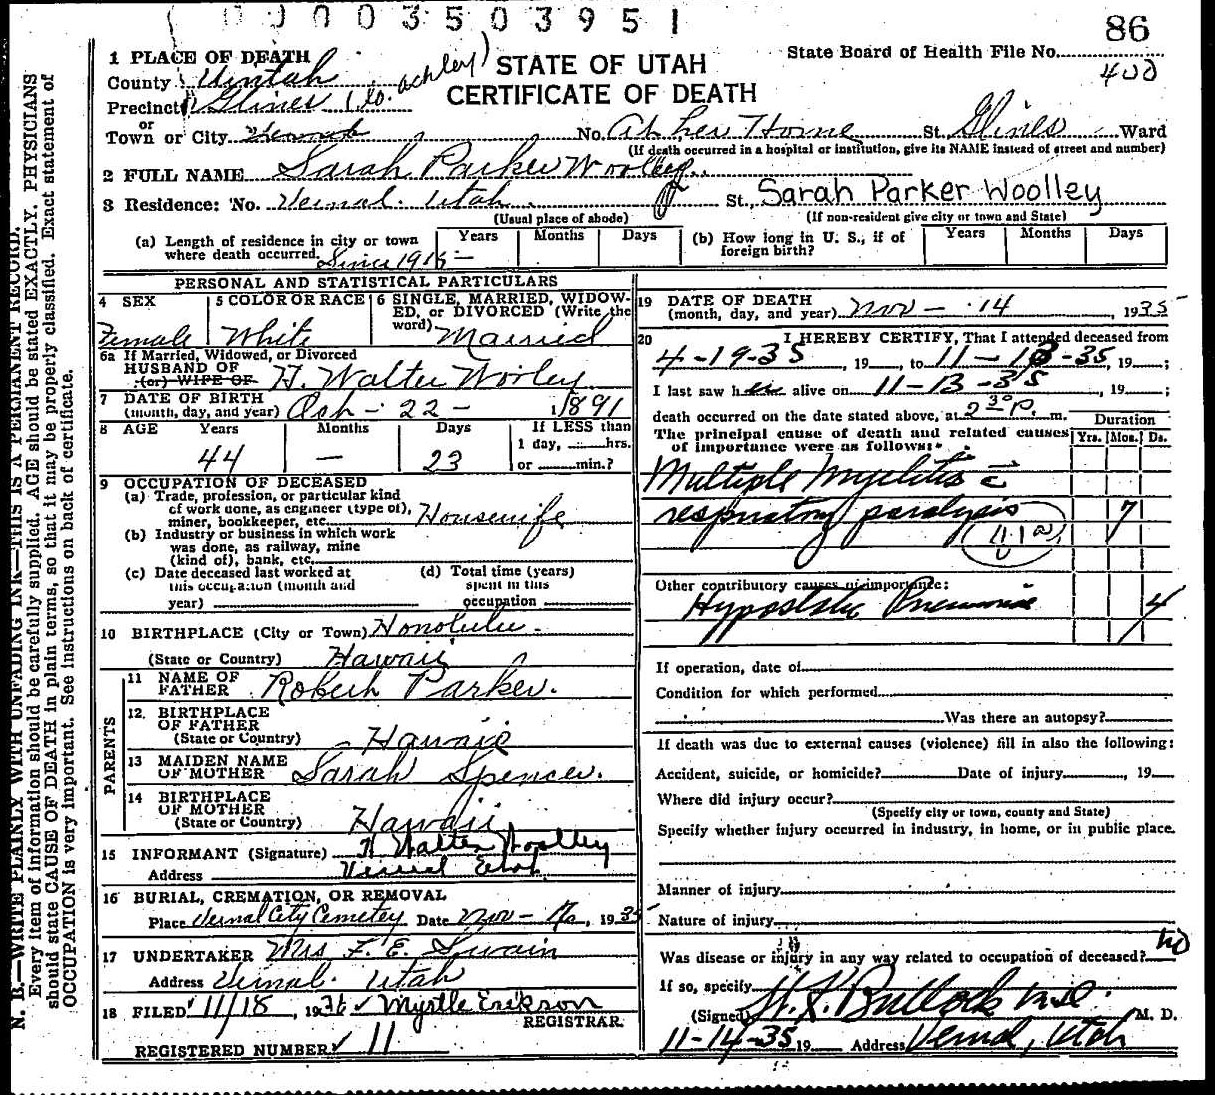 0003503951
86
1 PLACE OF DEATH
STATE OF UTAH
CERTIFICATE OF DEATH
State Board of Health File No.
400
County Uintah
Precinct Glines (Co. Ashley)
or
Town or City Vernal No. At her Home St. Glines Ward
(If death occurred in a hospital or institution, give its NAME instead of street and number)
2 FULL NAME Sarah Parker Woolley
3 Residence: No. Vernal. Utah St., Sarah Parker Woolley
(Usual place of abode) (If non-resident give city or town and State)
(a) Length of residence in city or town where death occurred. Since 1915 Years Months Days
(b) How long in U. S., if of foreign birth? Years Months Days
PERSONAL AND STATISTICAL PARTICULARS
4 SEX 5 COLOR OR RACE 6 SINGLE, MARRIED, WIDOWED, or DIVORCED (Write the word)
Female White Married
6a If Married, Widowed, or Divorced
HUSBAND OF
(or) WIFE OF H. Walter Woolley
7 DATE OF BIRTH
(month, day, and year) Oct - 22 - 1891
8 AGE Years Months Days If LESS than
1 day, hrs.
or min.?
44 — 23
9 OCCUPATION OF DECEASED
(a) Trade, profession, or particular kind
of work done, as engineer (type of),
miner, bookkeeper, etc. Housewife
(b) Industry or business in which work
was done, as railway, mine
(kind of), bank, etc.
(c) Date deceased last worked at
this occupation (month and
year)
(d) Total time (years)
spent in this
occupation
10 BIRTHPLACE (City or Town) Honolulu
(State or Country) Hawaii
PARENTS
11 NAME OF
FATHER Robert Parker.
12. BIRTHPLACE
OF FATHER
(State or Country) Hawaii
13 MAIDEN NAME
OF MOTHER Sarah Spencer.
14 BIRTHPLACE
OF MOTHER
(State or Country) Hawaii
15 INFORMANT (Signature) H Walter Woolley
Address Vernal Utah
16 BURIAL, CREMATION, OR REMOVAL
Place Vernal City Cemetery Date Nov - , 1935
17 UNDERTAKER Mrs F. E. Swain
Address Vernal. Utah
18 FILED 11/18, 1936 Myrtle Erikson
REGISTRAR.
REGISTERED NUMBER 11
19 DATE OF DEATH
(month, day, and year) Nov — 14, 1935
20 I HEREBY CERTIFY, That I attended deceased from
4-19-35, 19 , to 11-13-35, 19 ;
I last saw her alive on 11-13-35, 19 ;
death occurred on the date stated above, at 2 30 P. m.
The principal cause of death and related causes
of importance were as follows:
Duration
Yrs. Mos. Ds.
Multiple Myelitis c̄
respiratory paralysis 7
Other contributory causes of importance:
Hypostatic Pneumonia 4
If operation, date of
Condition for which performed
Was there an autopsy?
If death was due to external causes (violence) fill in also the following:
Accident, suicide, or homicide? Date of injury , 19
Where did injury occur?
(Specify city or town, county and State)
Specify whether injury occurred in industry, in home, or in public place.
Manner of injury
Nature of injury
Was disease or injury in any way related to occupation of deceased? No
If so, specify
(Signed) Bullock M. D.
11-14-35 19 Address Vernal, Utah
N. B.—WRITE PLAINLY WITH UNFADING INK—THIS IS A PERMANENT RECORD.
Every item of information should be carefully supplied. AGE should be stated EXACTLY. PHYSICIANS
should state CAUSE OF DEATH in plain terms, so that it may be properly classified. Exact statement of
OCCUPATION is very important. See instructions on back of certificate.